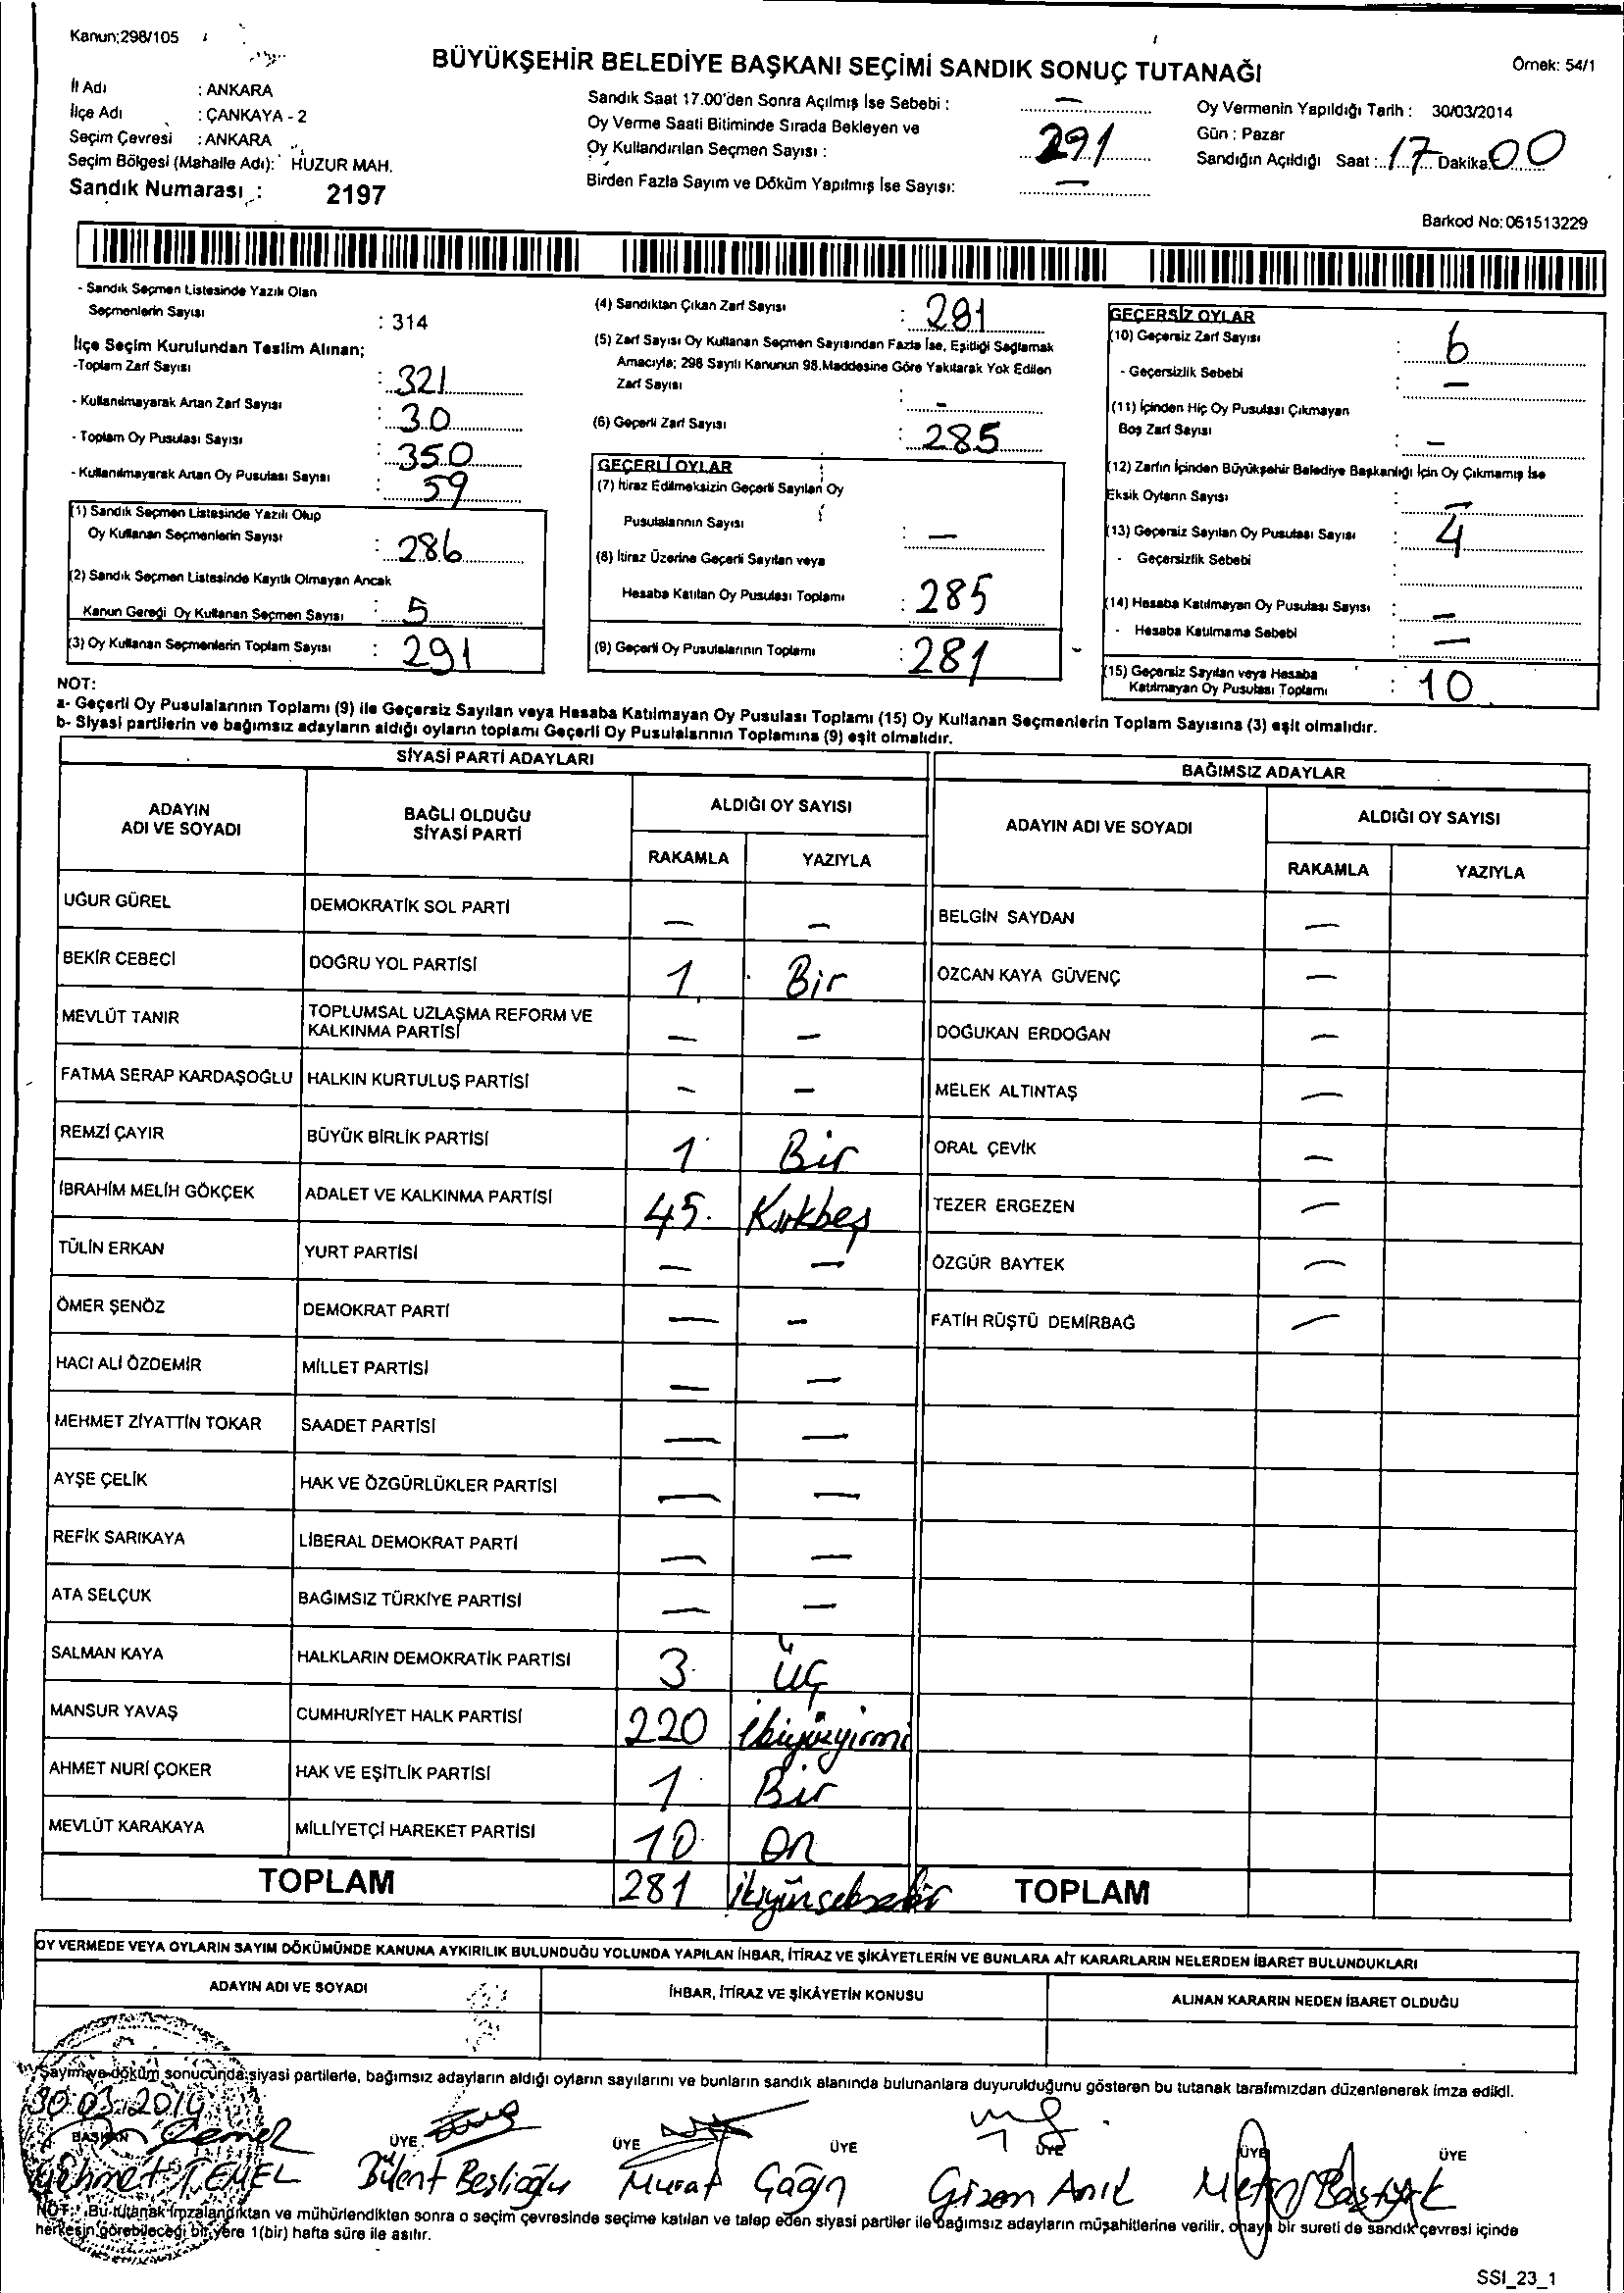 Kanun;298/105
BÜYÜKŞEHİR BELEDİYE BAŞKANI SEÇİMİ SANDIK SONUÇ TUTANAĞI
Örnek: 54/1
İl Adı : ANKARA
İlçe Adı : ÇANKAYA - 2
Seçim Çevresi : ANKARA
Seçim Bölgesi (Mahalle Adı): HUZUR MAH.
Sandık Numarası : 2197
Sandık Saat 17.00'den Sonra Açılmış İse Sebebi : —
Oy Verme Saati Bitiminde Sırada Bekleyen ve
Oy Kullandırılan Seçmen Sayısı : 291
Birden Fazla Sayım ve Döküm Yapılmış İse Sayısı: —
Oy Vermenin Yapıldığı Tarih : 30/03/2014
Gün : Pazar
Sandığın Açıldığı Saat : 17 Dakika: 00
Barkod No: 061513229
- Sandık Seçmen Listesinde Yazılı Olan
Seçmenlerin Sayısı : 314
İlçe Seçim Kurulundan Teslim Alınan;
-Toplam Zarf Sayısı : 321
- Kullanılmayarak Artan Zarf Sayısı : 30
- Toplam Oy Pusulası Sayısı : 350
- Kullanılmayarak Artan Oy Pusulası Sayısı : 59
(1) Sandık Seçmen Listesinde Yazılı Olup
Oy Kullanan Seçmenlerin Sayısı : 286
(2) Sandık Seçmen Listesinde Kayıtlı Olmayan Ancak
Kanun Gereği Oy Kullanan Seçmen Sayısı : 5
(3) Oy Kullanan Seçmenlerin Toplam Sayısı : 291
(4) Sandıktan Çıkan Zarf Sayısı : 291
(5) Zarf Sayısı Oy Kullanan Seçmen Sayısından Fazla İse, Eşitliği Sağlamak
Amacıyla; 298 Sayılı Kanunun 98.Maddesine Göre Yakılarak Yok Edilen
Zarf Sayısı : -
(6) Geçerli Zarf Sayısı : 285
GEÇERLİ OYLAR
(7) İtiraz Edilmeksizin Geçerli Sayılan Oy
Pusulalarının Sayısı : —
(8) İtiraz Üzerine Geçerli Sayılan veya
Hesaba Katılan Oy Pusulası Toplamı : 285
(9) Geçerli Oy Pusulalarının Toplamı : 281
GEÇERSİZ OYLAR
(10) Geçersiz Zarf Sayısı : 6
- Geçersizlik Sebebi : —
(11) İçinden Hiç Oy Pusulası Çıkmayan
Boş Zarf Sayısı : —
(12) Zarfın İçinden Büyükşehir Belediye Başkanlığı İçin Oy Çıkmamış İse
Eksik Oyların Sayısı : —
(13) Geçersiz Sayılan Oy Pusulası Sayısı : 4
- Geçersizlik Sebebi :
(14) Hesaba Katılmayan Oy Pusulası Sayısı : —
- Hesaba Katılmama Sebebi : —
(15) Geçersiz Sayılan veya Hesaba
Katılmayan Oy Pusulası Toplamı : 10
NOT:
a- Geçerli Oy Pusulalarının Toplamı (9) ile Geçersiz Sayılan veya Hesaba Katılmayan Oy Pusulası Toplamı (15) Oy Kullanan Seçmenlerin Toplam Sayısına (3) eşit olmalıdır.
b- Siyasi partilerin ve bağımsız adayların aldığı oyların toplamı Geçerli Oy Pusulalarının Toplamına (9) eşit olmalıdır.
SİYASİ PARTİ ADAYLARI
BAĞIMSIZ ADAYLAR
ADAYIN ADI VE SOYADI BAĞLI OLDUĞU SİYASİ PARTİ ALDIĞI OY SAYISI RAKAMLA YAZIYLA
ADAYIN ADI VE SOYADI ALDIĞI OY SAYISI RAKAMLA YAZIYLA
UĞUR GÜREL DEMOKRATİK SOL PARTİ — — BELGİN SAYDAN —
BEKİR CEBECİ DOĞRU YOL PARTİSİ 1 Bir ÖZCAN KAYA GÜVENÇ —
MEVLÜT TANIR TOPLUMSAL UZLAŞMA REFORM VE KALKINMA PARTİSİ — — DOĞUKAN ERDOĞAN —
FATMA SERAP KARDAŞOĞLU HALKIN KURTULUŞ PARTİSİ — — MELEK ALTINTAŞ —
REMZİ ÇAYIR BÜYÜK BİRLİK PARTİSİ 1 Bir ORAL ÇEVİK —
İBRAHİM MELİH GÖKÇEK ADALET VE KALKINMA PARTİSİ 45. Kırkbeş TEZER ERGEZEN —
TÜLİN ERKAN YURT PARTİSİ — — ÖZGÜR BAYTEK —
ÖMER ŞENÖZ DEMOKRAT PARTİ — — FATİH RÜŞTÜ DEMİRBAĞ —
HACI ALİ ÖZDEMİR MİLLET PARTİSİ — —
MEHMET ZİYATTİN TOKAR SAADET PARTİSİ — —
AYŞE ÇELİK HAK VE ÖZGÜRLÜKLER PARTİSİ — —
REFİK SARIKAYA LİBERAL DEMOKRAT PARTİ — —
ATA SELÇUK BAĞIMSIZ TÜRKİYE PARTİSİ — —
SALMAN KAYA HALKLARIN DEMOKRATİK PARTİSİ 3 üç
MANSUR YAVAŞ CUMHURİYET HALK PARTİSİ 220 ikiyüzyirmi
AHMET NURİ ÇOKER HAK VE EŞİTLİK PARTİSİ 1 Bir
MEVLÜT KARAKAYA MİLLİYETÇİ HAREKET PARTİSİ 10 on
TOPLAM 281 ikiyüzseksenbir TOPLAM
OY VERMEDE VEYA OYLARIN SAYIM DÖKÜMÜNDE KANUNA AYKIRILIK BULUNDUĞU YOLUNDA YAPILAN İHBAR, İTİRAZ VE ŞİKÂYETLERİN VE BUNLARA AİT KARARLARIN NELERDEN İBARET BULUNDUKLARI
ADAYIN ADI VE SOYADI İHBAR, İTİRAZ VE ŞİKÂYETİN KONUSU ALINAN KARARIN NEDEN İBARET OLDUĞU
Sayım ve döküm sonucunda siyasi partilerle, bağımsız adayların aldığı oyların sayılarını ve bunların sandık alanında bulunanlara duyurulduğunu gösteren bu tutanak tarafımızdan düzenlenerek imza edildi.
30.03.2014
BAŞKAN ÜYE ÜYE ÜYE ÜYE ÜYE ÜYE
Mehmet TEMEL Bülent Beşlioğlu Murat Çağın Gizem Anıl Metin Baştürk
NOT: Bu tutanak imzalandıktan ve mühürlendikten sonra o seçim çevresinde seçime katılan ve talep eden siyasi partiler ile bağımsız adayların müşahitlerine verilir, onaylı bir sureti de sandık çevresi içinde
herkesin görebileceği bir yere 1(bir) hafta süre ile asılır.
SSI_23_1